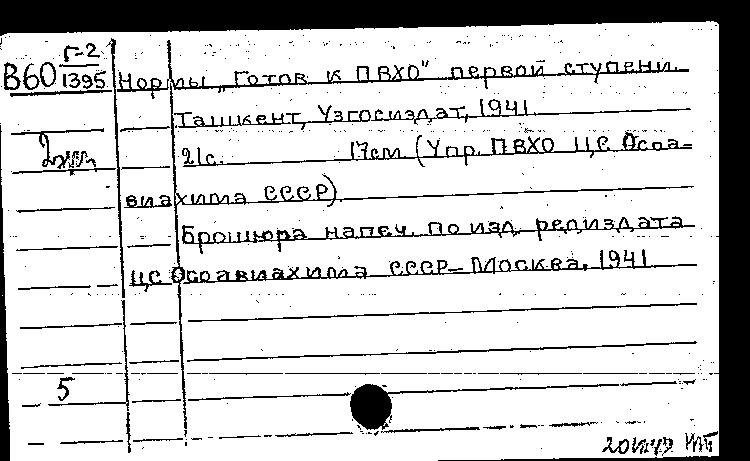 В60 Г-2/1395 Нормы „Готов к ПВХО" первой ступени.
Ташкент, Узгосиздат, 1941.
2 экз
21с. 17см (Упр. ПВХО ЦС Осоа-
виахима СССР)
Брошюра напеч. по изд. редиздата
ЦС Осоавиахима СССР – Москва, 1941
5